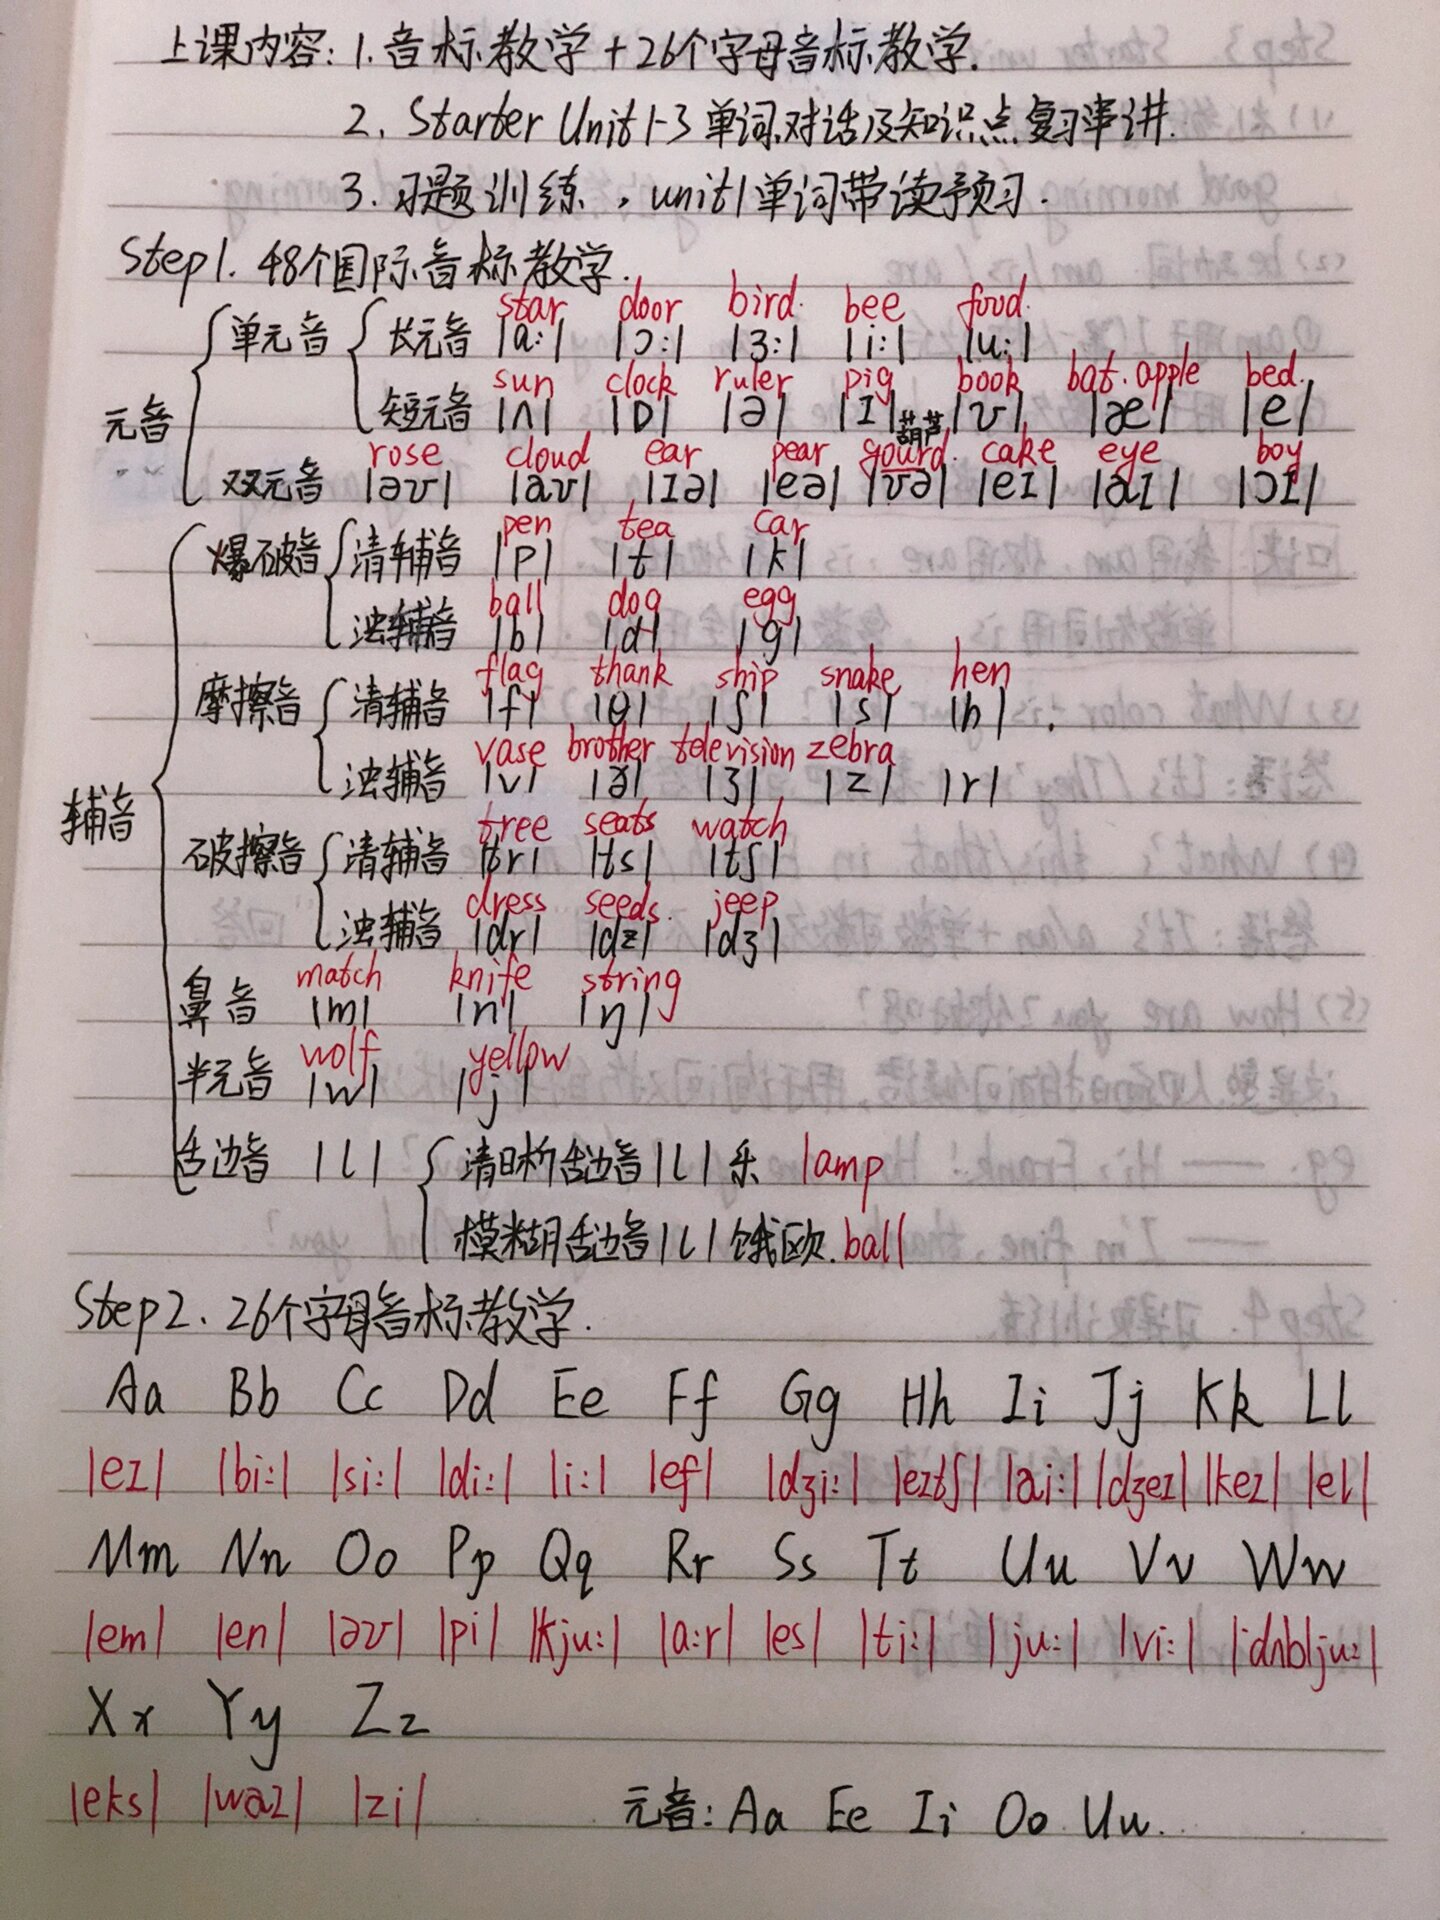 上课内容: 1. 音标教学 + 26个字母音标教学.
2. Starter Unit 1-3 单词.对话及知识点复习串讲.
3. 习题训练, unit1单词带读预习.
Step1. 48个国际音标教学.
star door bird. bee food.
单元音 长元音 |a:| |ɔ:| |ɜ:| |i:| |u:|
sun clock ruler pig book bat.apple bed.
元音 短元音 |ʌ| |ɒ| |ə| |ɪ| |ʊ| |æ| |e|
葫芦
rose cloud ear pear gourd. cake eye boy
双元音 |əʊ| |aʊ| |ɪə| |eə| |ʊə| |eɪ| |aɪ| |ɔɪ|
pen tea car
爆破音 清辅音 |p| |t| |k|
ball dog egg
浊辅音 |b| |d| |g|
flag thank ship snake hen
摩擦音 清辅音 |f| |θ| |ʃ| |s| |h| .
vase brother television zebra
浊辅音 |v| |ð| |ʒ| |z| |r|
辅音
tree seats watch
破擦音 清辅音 |tr| |ts| |tʃ|
dress seeds. jeep
浊辅音 |dr| |dz| |dʒ|
match knife string
鼻音 |m| |n| |ŋ|
wolf yellow
半元音 |w| |j|
舌边音 |l| 清晰舌边音|l|乐 lamp
模糊舌边音|l|饿欧. ball
Step2. 26个字母音标教学.
Aa Bb Cc Dd Ee Ff Gg Hh Ii Jj Kk Ll
|eɪ| |bi:| |si:| |di:| |i:| |ef| |dʒi:| |eɪtʃ| |ai:| |dʒeɪ| |keɪ| |el|
Mm Nn Oo Pp Qq Rr Ss Tt Uu Vv Ww
|em| |en| |əʊ| |pi| |kju:| |a:r| |es| |ti:| |ju:| |vi:| |ˈdʌblju:|
Xx Yy Zz
|eks| |waɪ| |zi|
元音: Aa Ee Ii Oo Uu.